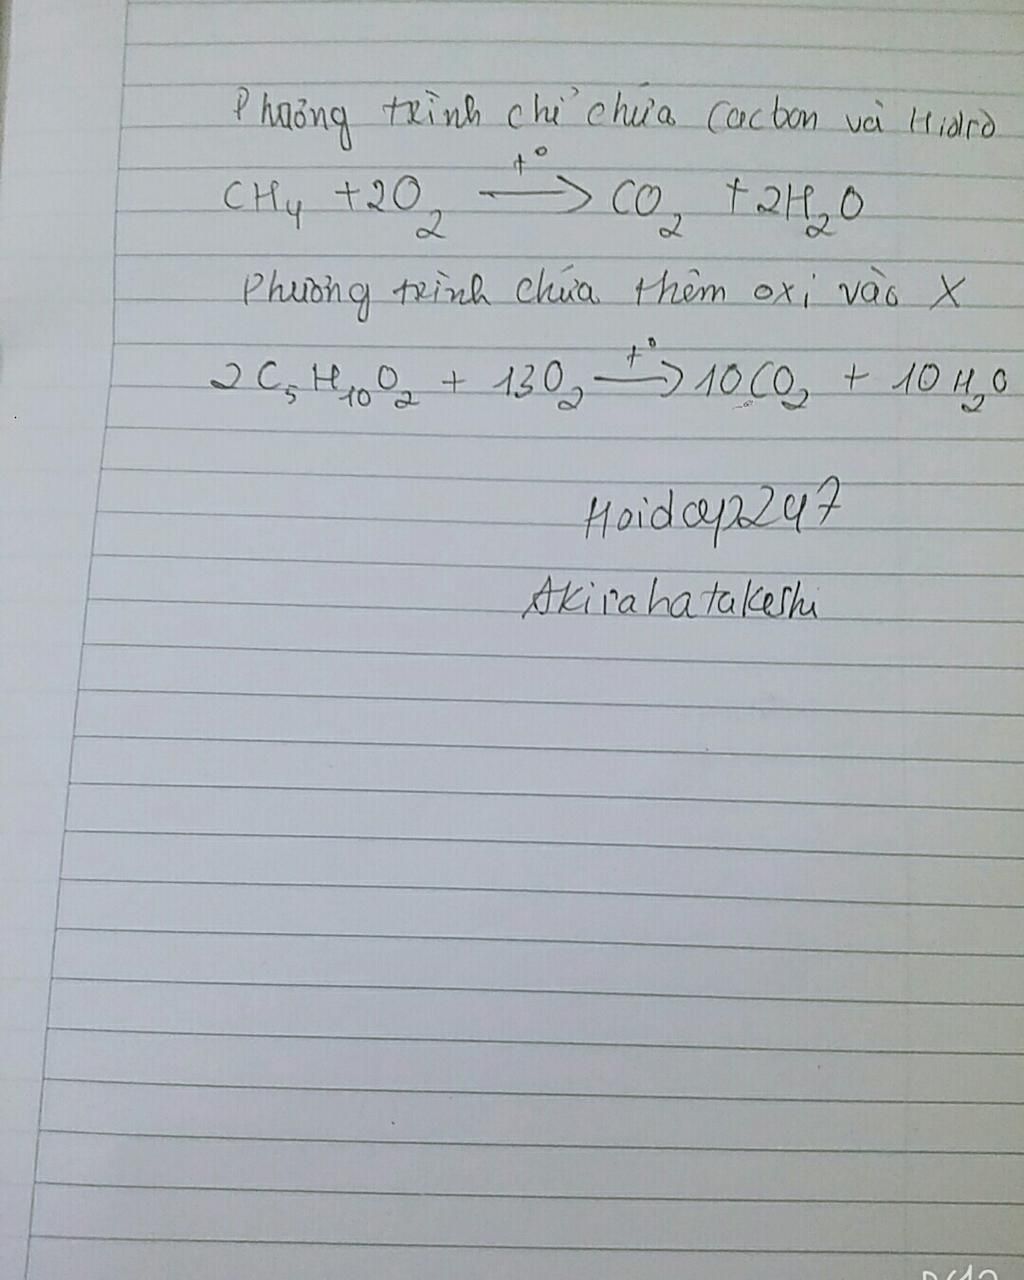 Phương trình chỉ chứa Cacbon và Hidrô
CH₄ + 2O₂ t° → CO₂ + 2H₂O
Phương trình chứa thêm oxi vào X
2C₅H₁₀O₂ + 13O₂ t° → 10CO₂ + 10H₂O
Hoidap247
Akirahatakeshi